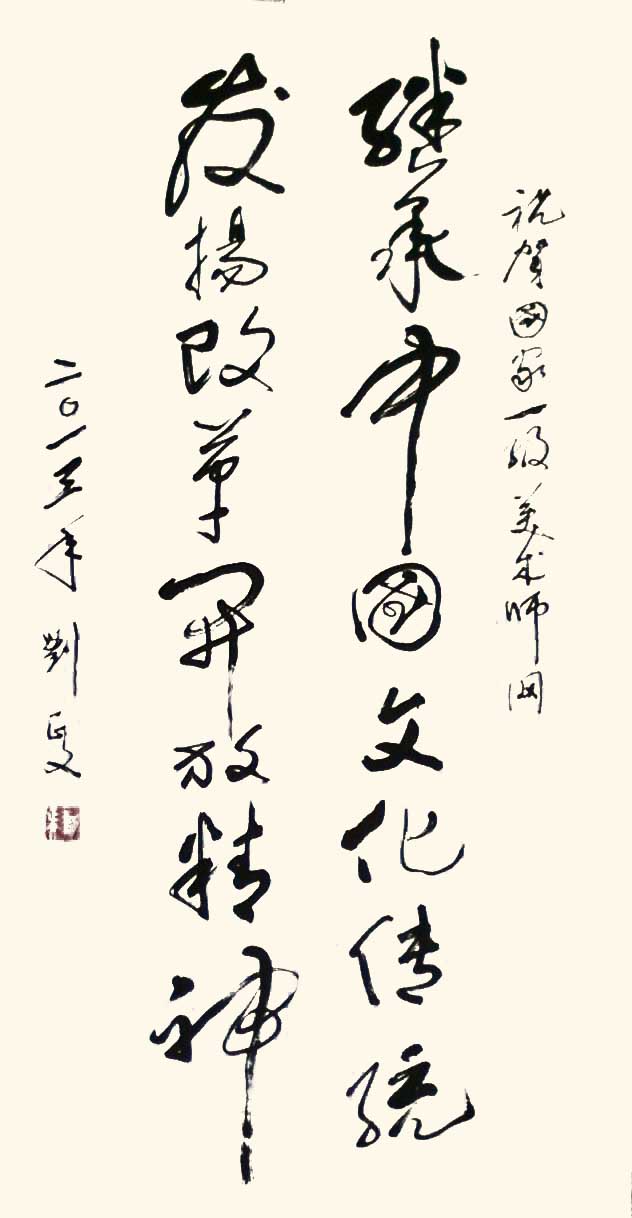 祝贺国家一级美术师网
继承中國文化传统
发扬改革开放精神
二〇一三年 劉